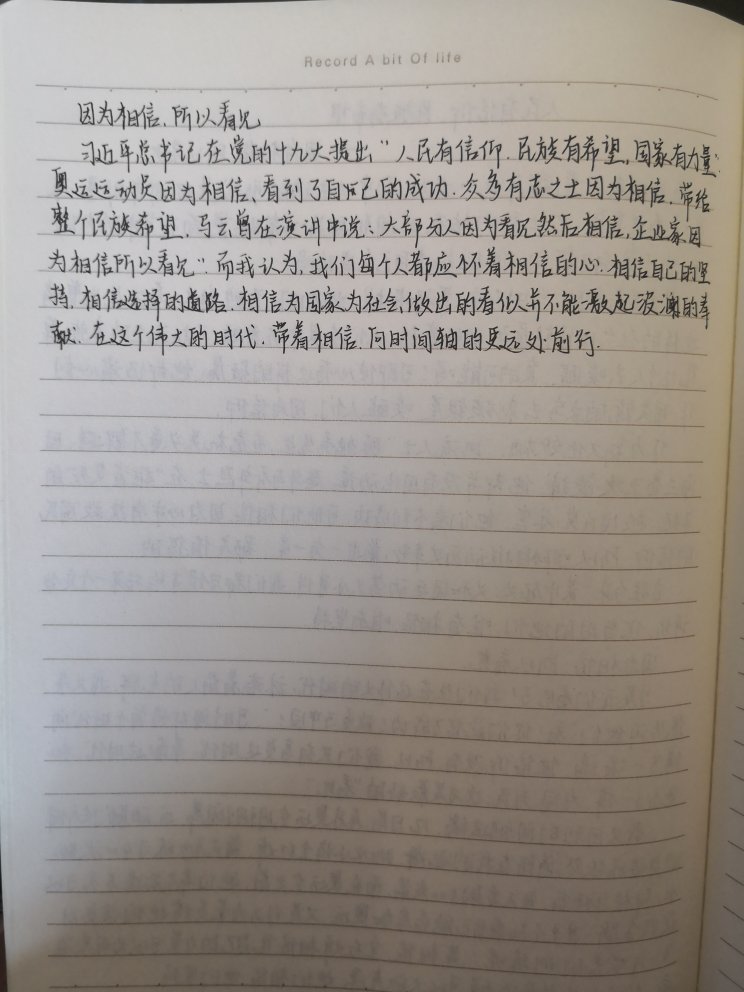 Record A bit Of life
因为相信，所以看见
习近平总书记在党的十九大提出“人民有信仰，民族有希望，国家有力量”
奥运运动员因为相信，看到了自己的成功，众多有志之士因为相信，带给
整个民族希望，马云曾在演讲中说：大部分人因为看见然后相信，企业家因
为相信所以看见”而我认为，我们每个人都应怀着相信的心，相信自己的坚
持，相信选择的道路，相信为国家为社会做出的看似并不能激起波澜的奉
献，在这个伟大的时代，带着相信，向时间轴的更远处前行.